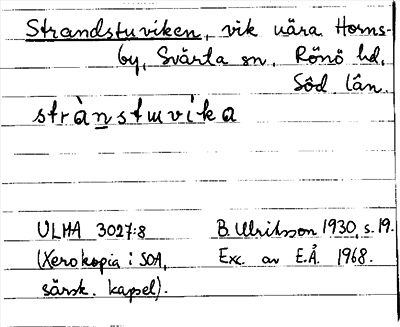 Strandstuviken, vik nära Horns-
by, Svärta sn, Rönö hd,
Söd. län.
stràn̲stuvi̍ka
ULMA 3027:8 B. Ulriksson 1930, s. 19.
(Xerokopia i SOA, Exc. av E.Å. 1968.
särsk. kapsel).